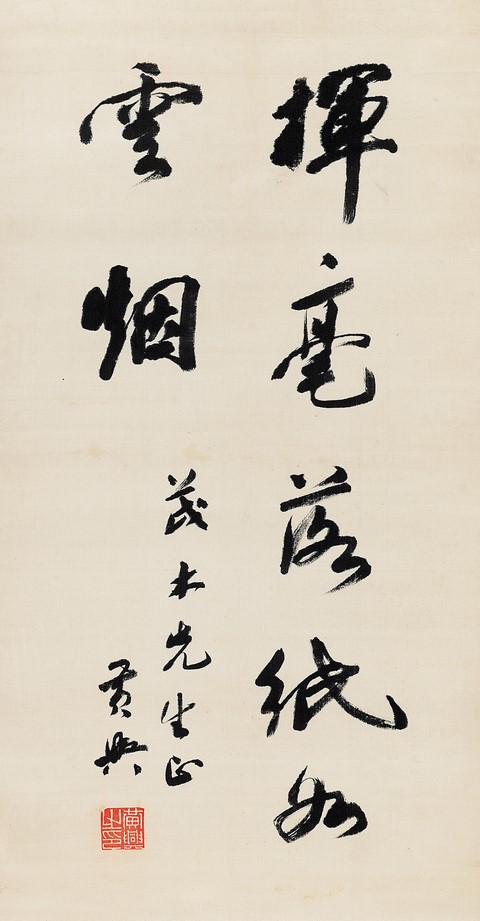 揮毫落紙如
雲烟
茂木先生正
黃興
黃興之印